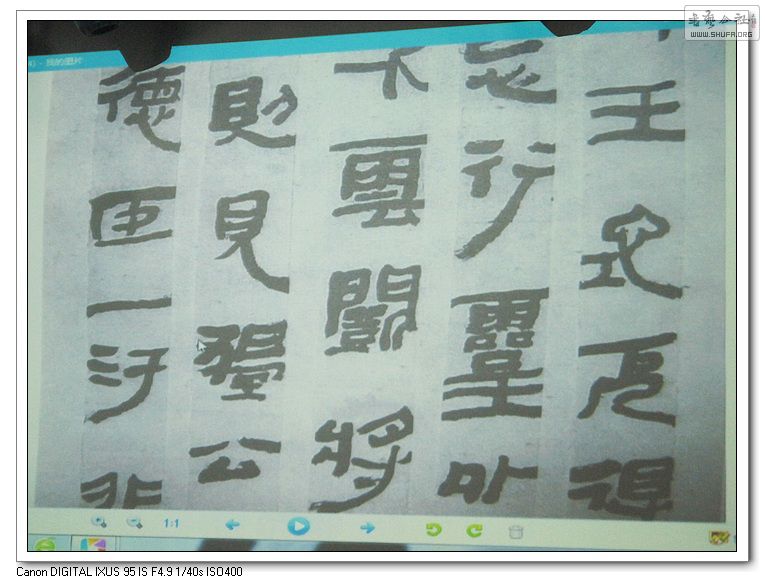 书艺公社
WWW.SHUFA.ORG
我的图片
王 得
行 靈 外
雲 將
則 見 獨 公
德 匝 一 汙 非
1:1
Canon DIGITAL IXUS 95 IS F4.9 1/40s ISO400